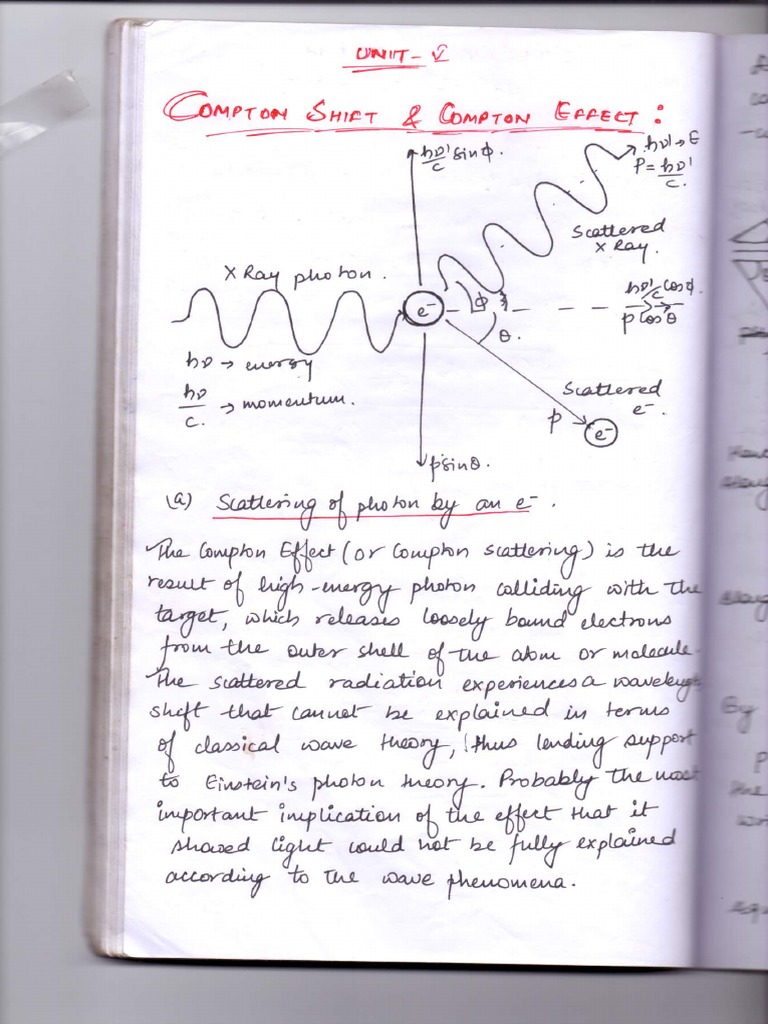 UNIT-V
COMPTON SHIFT & COMPTON EFFECT:
hν'/c sinφ.
hν'→E
P=hν'/c.
Scattered
X Ray.
X Ray photon.
φ
hν'/c cosφ.
e⁻
p cosθ
θ.
hν → energy
hν/c. → momentum.
Scattered
e⁻.
p
e⁻
psinθ.
(a) Scattering of photon by an e⁻.
The Compton Effect (or Compton scattering) is the
result of high-energy photon colliding with the
target, which releases loosely bound electrons
from the outer shell of the atom or molecule.
The scattered radiation experiences a wavelength
shift that cannot be explained in terms
of classical wave theory, thus lending support
to Einstein's photon theory. Probably the most
important implication of the effect that it
showed light could not be fully explained
according to the wave phenomena.